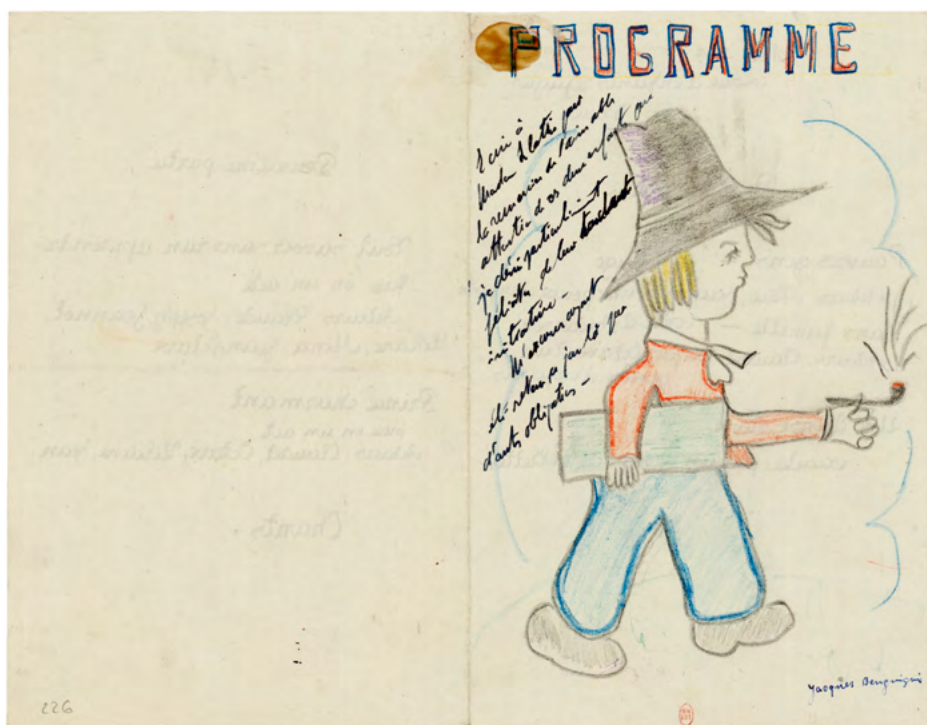 PROGRAMME
Ecrire à
Madame Zlatin pour
la remercier de l'aimable
attention de ces deux enfants que
je désire particulièrement
féliciter de leur touchante
initiative -
M'excuser ayant
été retenu ce jour là par
d'autres obligations -
Jacques Benguigui
226